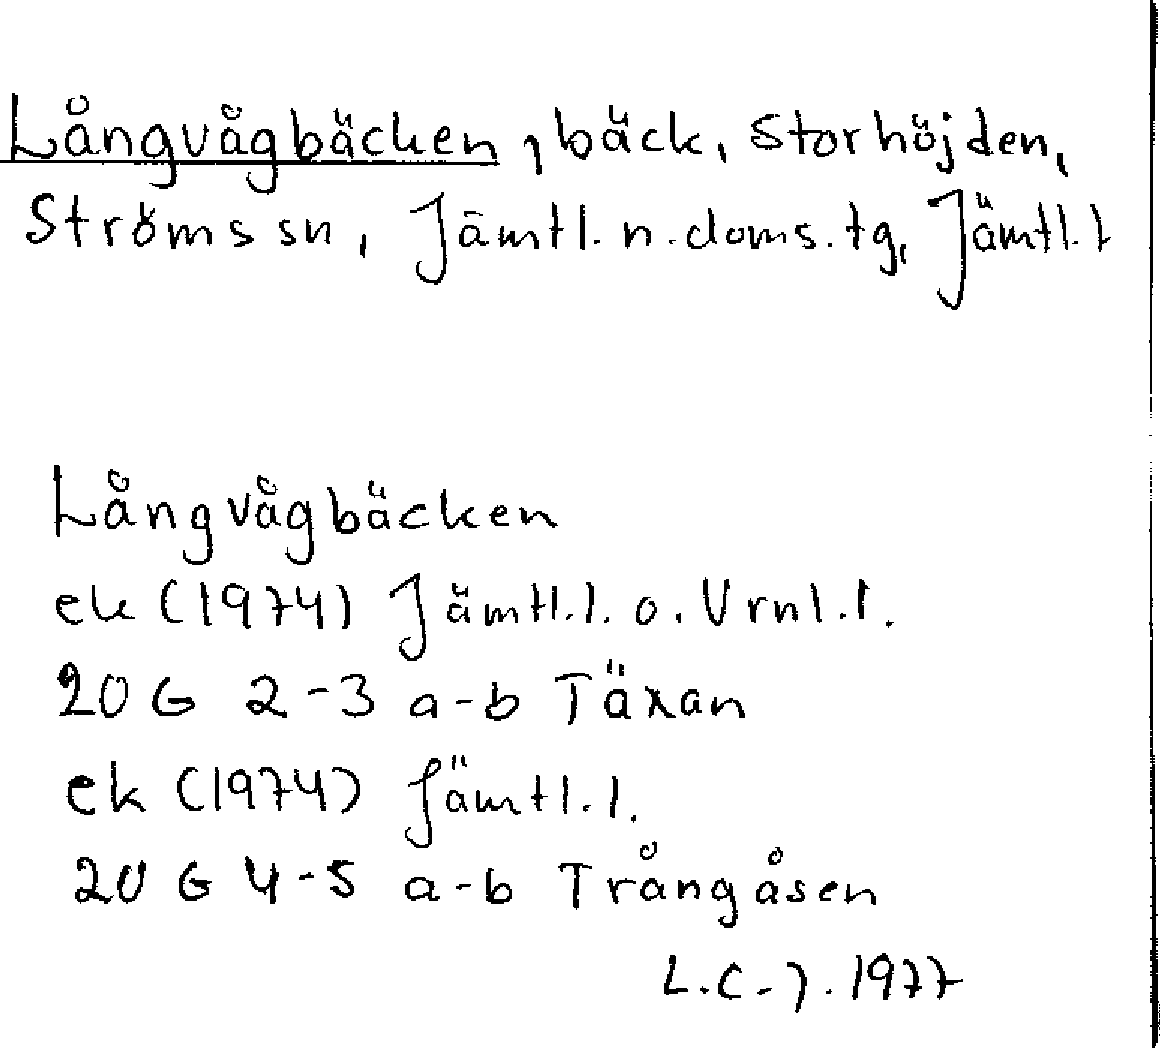 Långvågbäcken, bäck, Storhöjden,
Ströms sn, Jämtl. n. doms. tg, Jämtl. l
Långvågbäcken
ek (1974) Jämtl. l. o. Vrnl. l.
20 G 2-3 a-b Täxan
ek (1974) Jämtl. l.
20 G 4-5 a-b Trångåsen
L.C-7. 1977